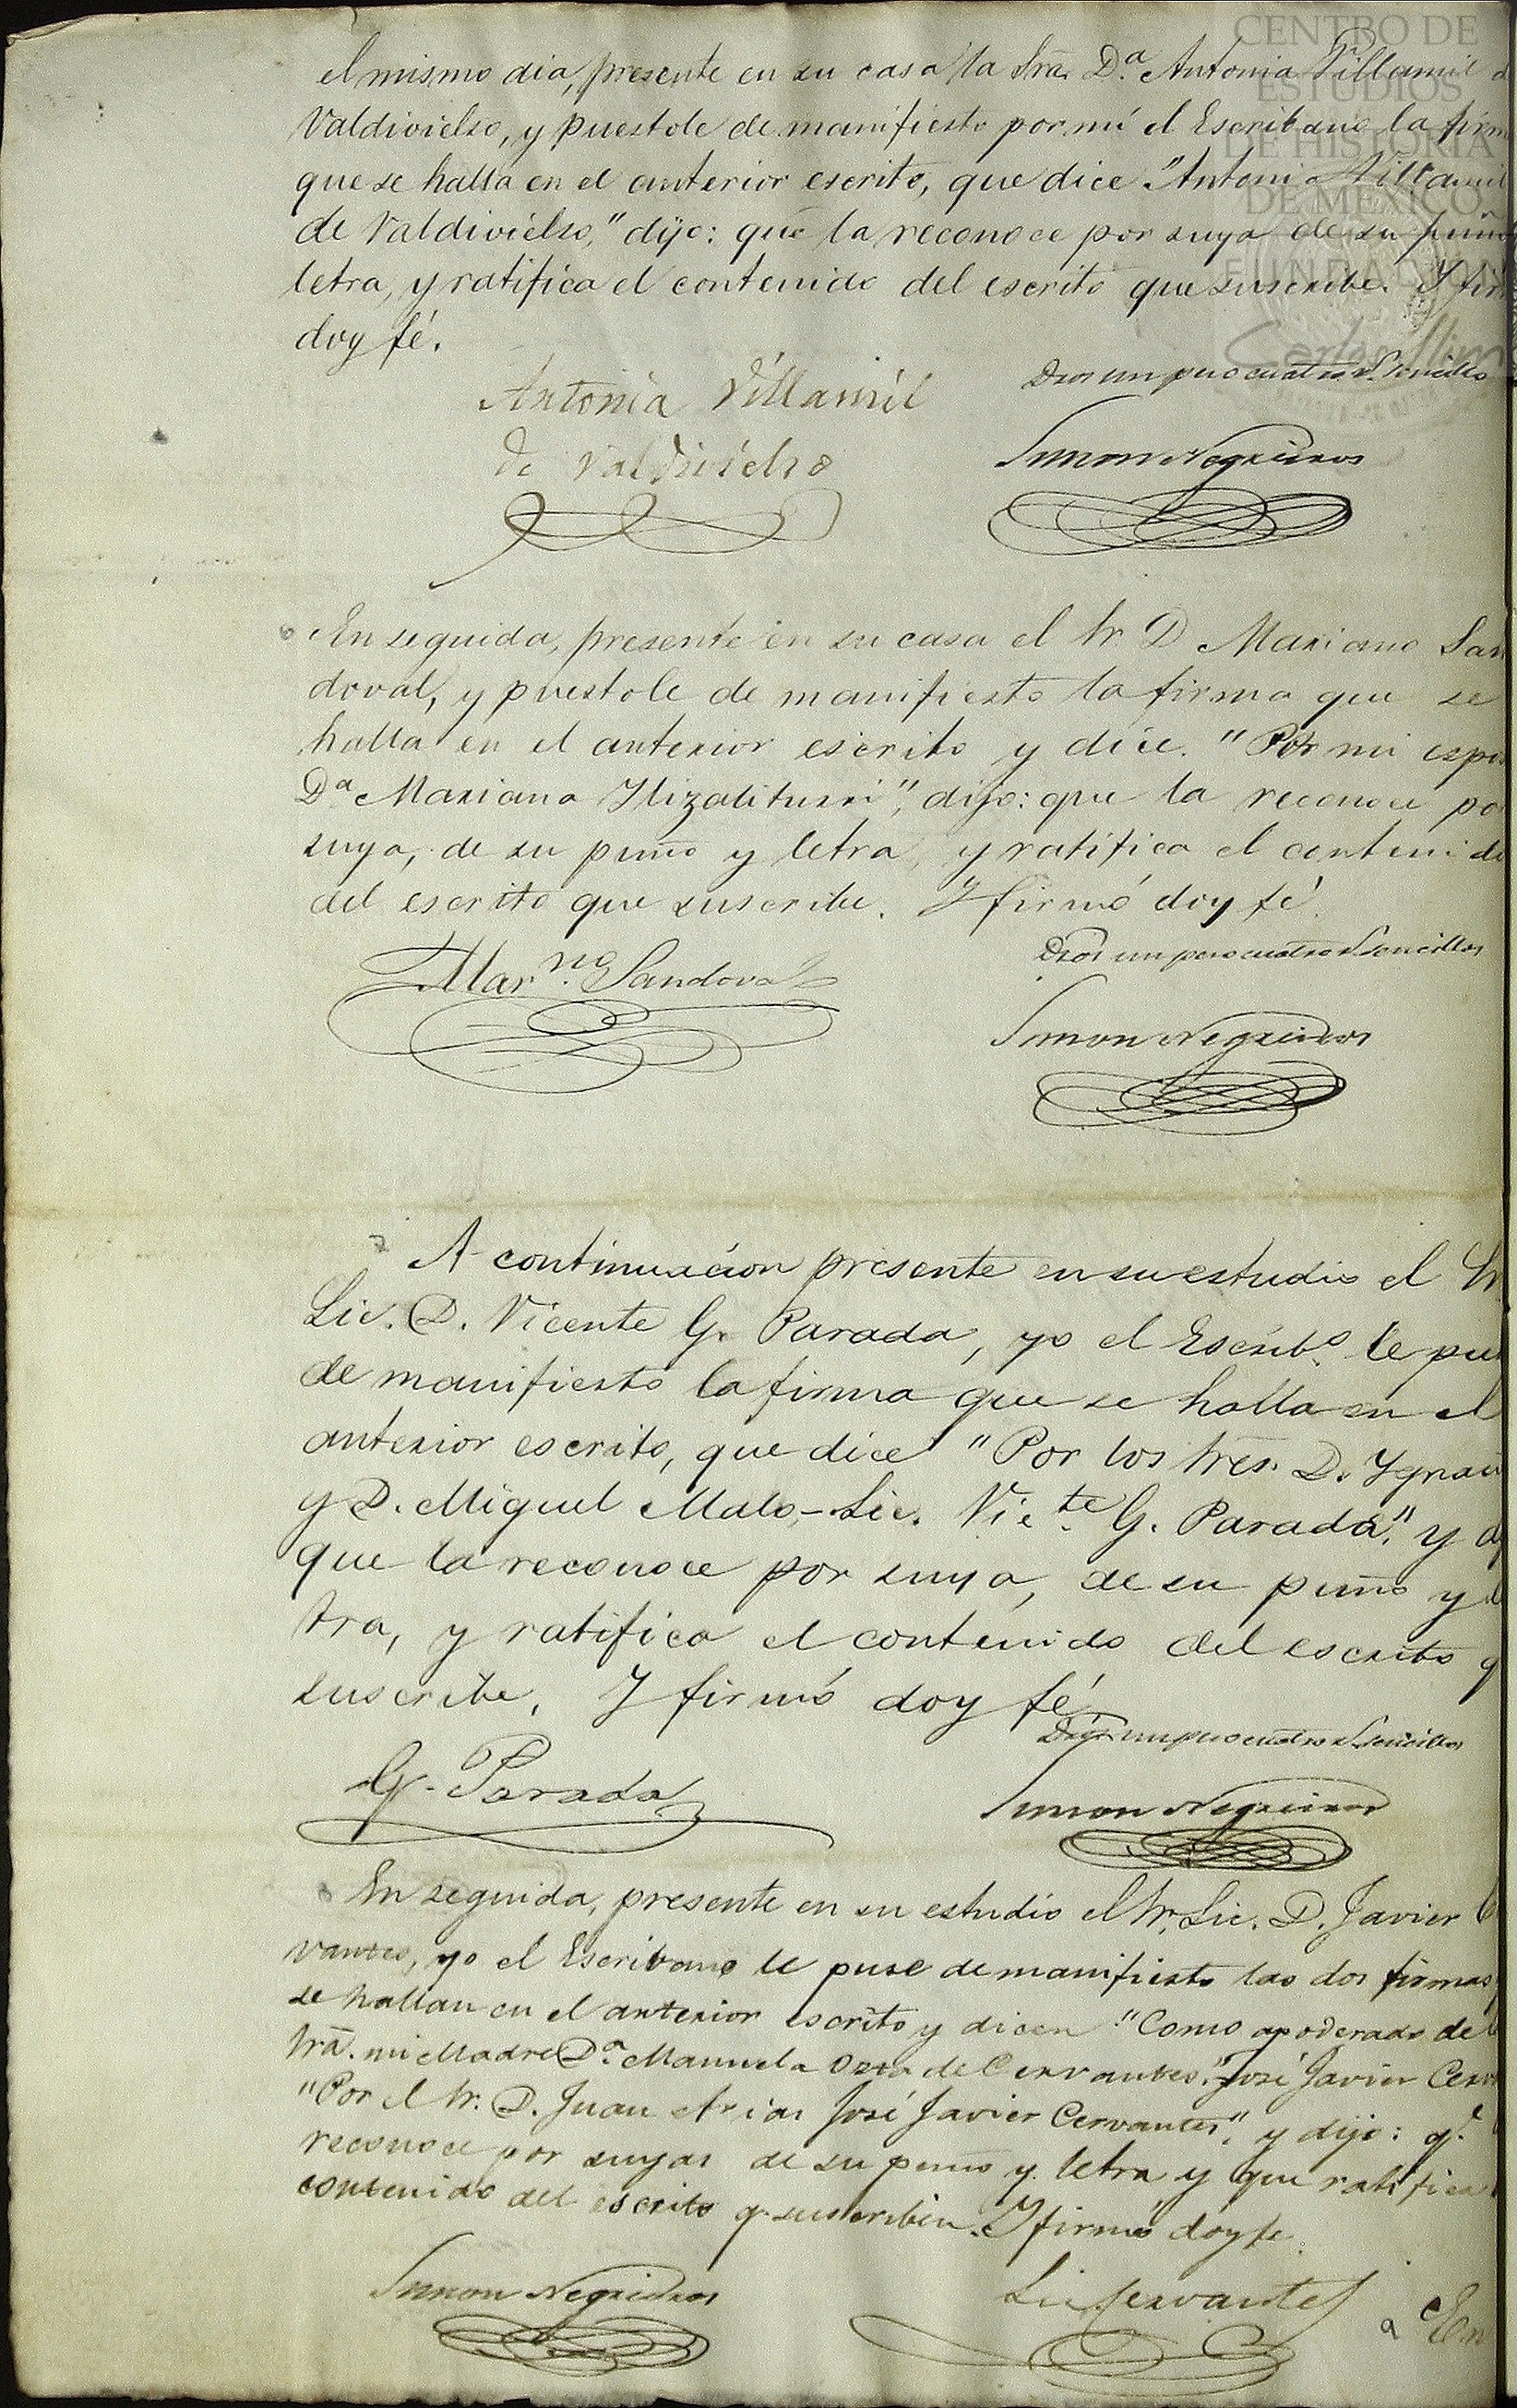 CENTRO DE
ESTUDIOS
DE HISTORIA
DE MÉXICO
FUNDACIÓN
Carlos Slim
el mismo dia, presente en su casa la Srã. D.ª Antonia Villamil d
Valdivielso, y puestole de manifiesto por mí el Escribano la firm
que se halla en el anterior escrito, que dice "Antonia Villamil
de Valdivielso," dijo: que la reconoce por suya de su puño
letra, y ratifica el contenido del escrito que suscribe. Y fir
doy fé.
Antonia Villamil
de Valdivielso
Dros un peso cuatro r.s sencillos
Simon Negreiros
6 En seguida, presente en su casa el Sr. D Mariano San
doval, y puestole de manifiesto la firma que se
halla en el anterior escrito y dice. "Por mi espo
Dª Mariana Ylizaliturri", dijo: que la reconoce po
suya, de su puño y letra, y ratifica el contenido
del escrito que suscribe. Y firmó doy fé.
Mar.no Sandoval
Dros un peso cuatro r.s sencillos
Simon Negreiros
7 A continuacion presente en su estudio el Sr.
Lic. D. Vicente G. Parada, yo el Escrib.o le pu
de manifiesto la firma que se halla en el
anterior escrito, que dice "Por los Sres. D. Ygnac
y D. Miguel Malo,- Lic. Vic.te G. Parada", y d
que la reconoce por suya, de su puño y le
tra, y ratifica el contenido del escrito q
suscribe. Y firmó doy fé.
G. Parada
Dros un peso cuatro r.s sencillos
Simon Negreiros
8 En seguida, presente en su estudio el Sr. Lic. D. Javier C
vantes, yo el Escribano le puse de manifiesto las dos firmas
se hallan en el anterior escrito y dicen "Como apoderado de
Srã. mi Madre Dª. Manuela Ozta de Cervantes." José Javier Cerv
"Por el Sr. D. Juan Arias José Javier Cervantes", y dijo: q.e
reconoce por suyas de su puño y letra y que ratifica
contenido del escrito q. suscriben. Y firmó doy fe.
Simon Negreiros
Lic. Cervantes
9 En